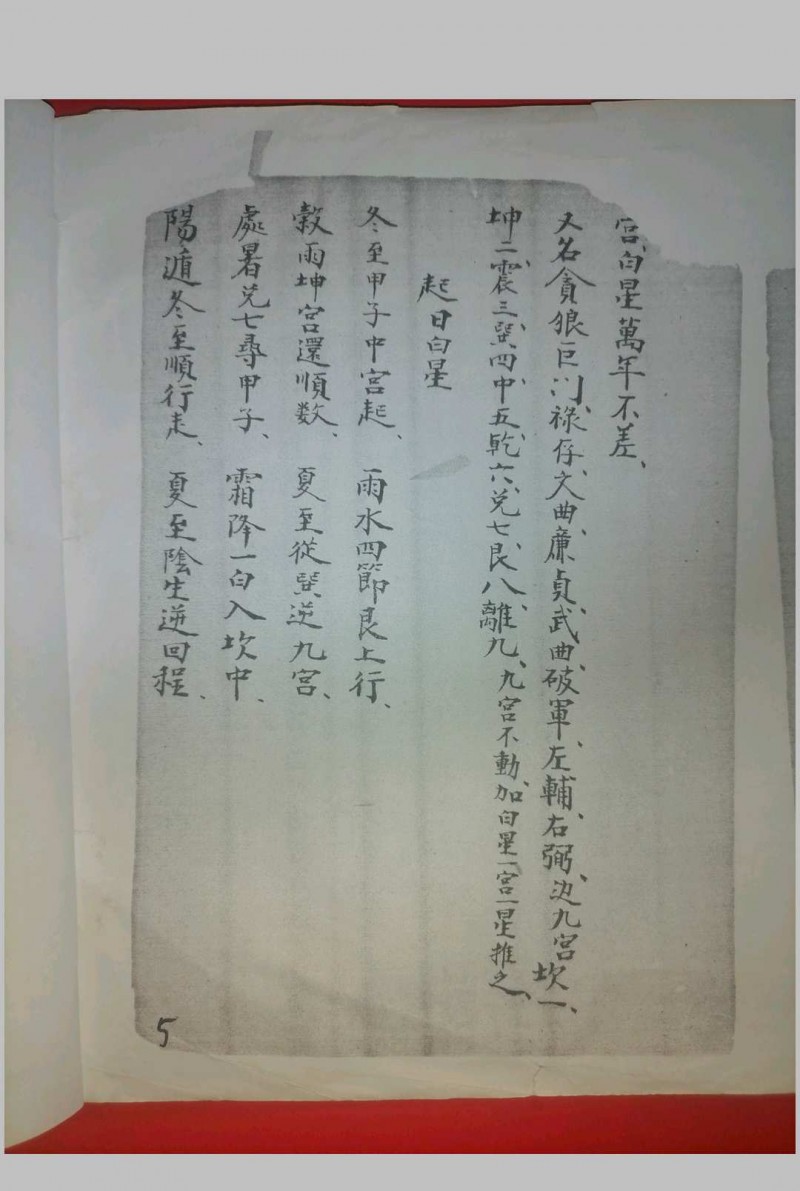 宫、白星萬年不差、
又名貪狼、巨门、祿存、文曲、廉貞、武曲、破軍、左輔、右弼、边九宫坎一、
坤二、震三、巽四、中五、乾六、兑七、艮八、離九、九宫不動、加白星一宫一星推之、
起日白星
冬至甲子中宫起、 雨水四節艮上行、
穀雨坤宫還順数、 夏至從巽逆九宫、
處暑兑七尋甲子、 霜降一白入坎中、
陽遁冬至順行走、 夏至陰生逆回程、
5